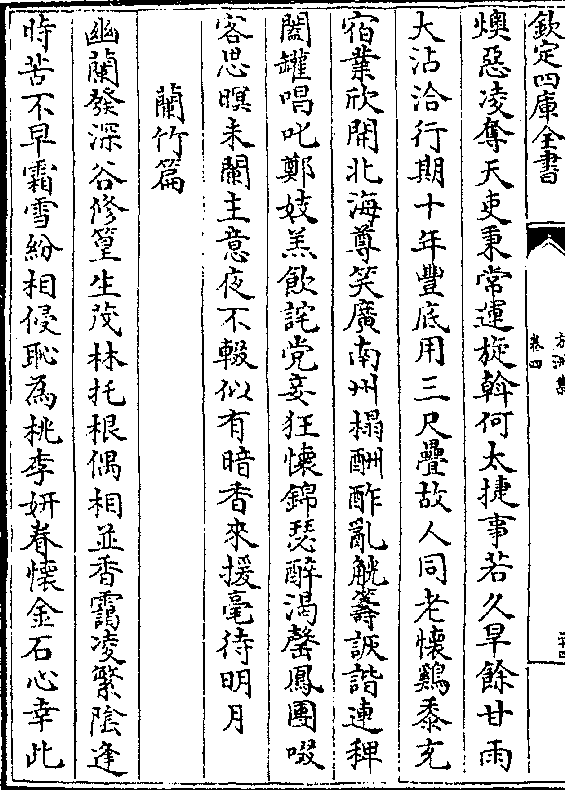 欽定四庫全書
卷四
燠惡凌奪天吏秉常運旋斡何太捷事若久旱餘甘雨
大沾洽行期十年豐底用三尺疊故人同老懷鷄黍充
宿業欣開北海尊笑廣南州榻酬酢亂觥籌詼諧連稗
闔罐唱叱鄭妓羔飲詫党妾狂懷錦瑟醉渴罄鳳團啜
客思暝未闌主意夜不輟似有暗香來援毫待明月
蘭竹篇
幽蘭發深谷修篁生茂林托根偶相並香靄凌繁陰逢
時苦不早霜雪紛相侵恥為桃李妍眷懷金石心幸此